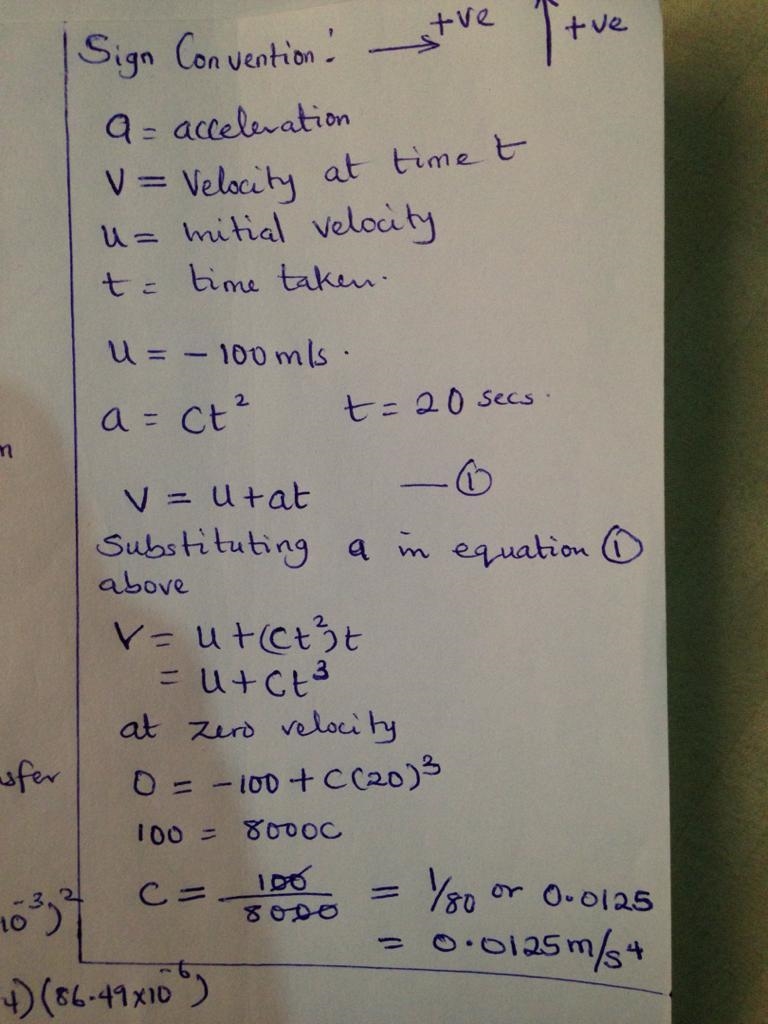 Sign Convention: → +ve ↑ +ve
a = acceleration
V = Velocity at time t
u = initial velocity
t = time taken.
u = - 100 m/s.
a = ct² t = 20 secs.
V = u + at — ①
Substituting a in equation ①
above
V = u + (ct²)t
= u + ct³
at zero velocity
0 = -100 + C(20)³
100 = 8000C
C = 100/8000 = 1/80 or 0.0125
= 0.0125 m/s⁴
n
sfer
10⁻³)²
4)(86.49x10⁻⁶)